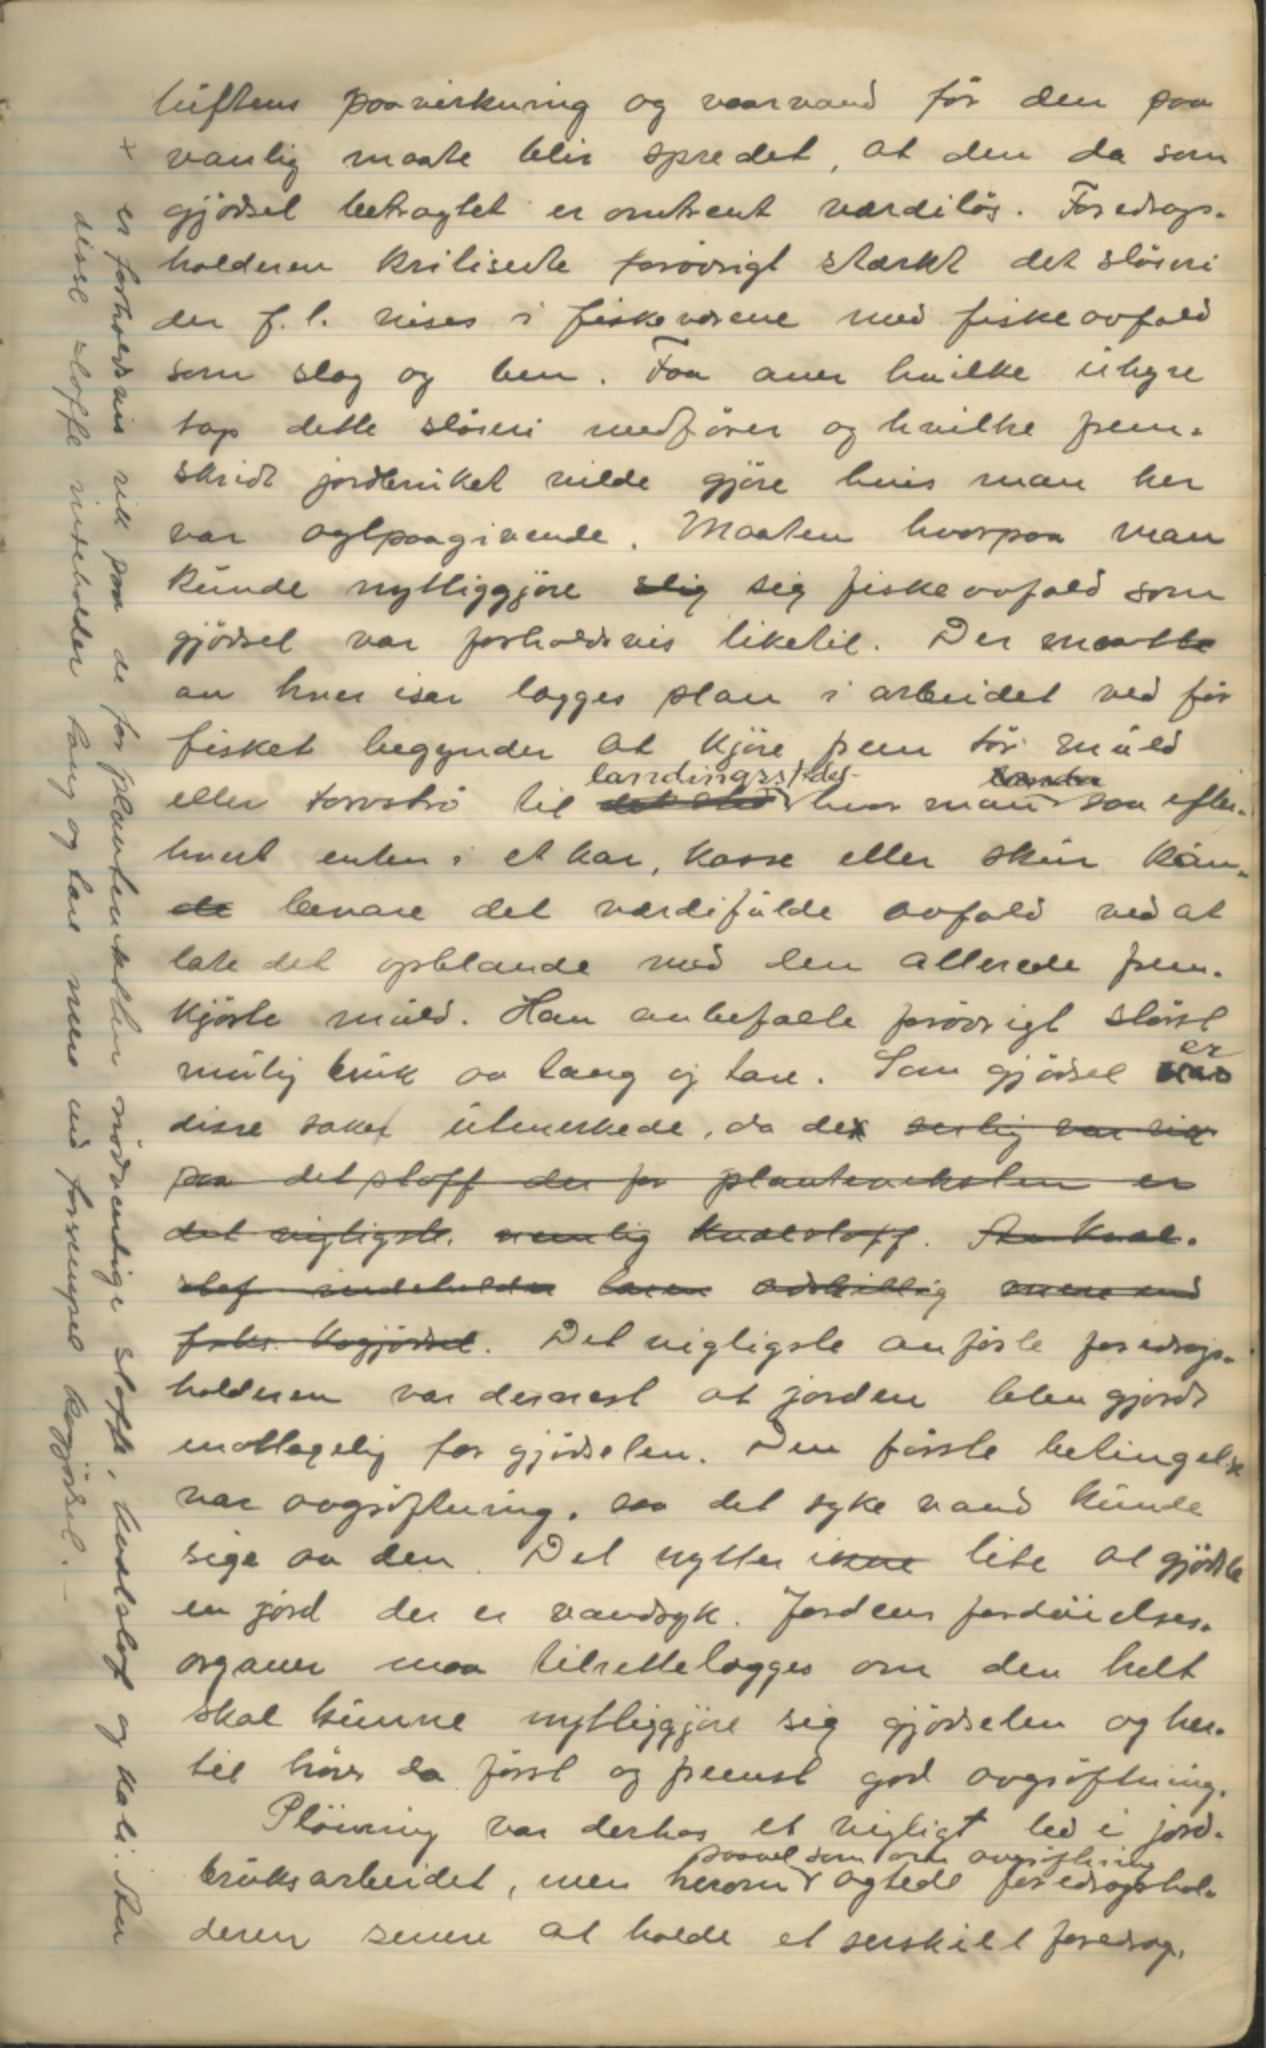 luftens paavirkning og vaarvand før den paa
vanlig maate blir spredet, at den da som
gjødsel betragtet er omtrent værdiløs. Foredrags-
holderen kritiserte forøvrigt stærkt det sløseri
der f.t. vises i fiskeværene med fiskeavfald
som slog og ben. Faa aner hvilke uhyre
tap dette sløseri medfører og hvilke frem-
skridt jordbruket vilde gjøre hvis man her
var agtpaagivende. Maaten hvorpaa man
kunde nyttiggjøre slig sig fiskeavfald som
gjødsel var forholdsvis liketil. Der maatte
av hver især lægges plan i arbeidet ved før
fisket begynder at kjøre frem tør muld
landingsstedet
eller torvstrø til det sted hvor man saa efter-
hvert enten i et kar, kasse eller skur kun-
de bevare det værdifulde avfald ved at
late det opblande med den allerede frem-
kjørte muld. Han anbefalte forøvrigt størst
mulig bruk av tang og tare. Som gjødsel var
er
disse saker utmerkede, da de særlig var rik
paa det stoff der for planteveksten er
det vigtigste, nemlig kvælstoff. Av kvæl-
stof indeholder taren adskillig mere end
f.eks. kogjødsel. Det vigtigste anførte foredrags-
holderen var dernæst at jorden blev gjordt
mottagelig for gjødselen. Den første betingelse
var avgrøftning, saa det syke vand kunde
sige av den. Det nytter ikke lite at gjødsle
en jord der er vandsyk. Jordens fordøielses-
organer maa tilrettelægges om den helt
skal kunne nyttiggjøre sig gjødselen og her-
til hører da først og fremst god avgrøftning.
Pløining var derhos et vigtigt led i jord-
saavel som om avgrøftning
bruksarbeidet, men herom agtede foredragshol-
deren senere at holde et særskilt foredrag.
x er forholdsvis rik paa de for planteveksten nødvendige stoffe, kvælstof og kali. Av
disse stoffe indeholder tang og tare mere end forexempel kogjødsel. –